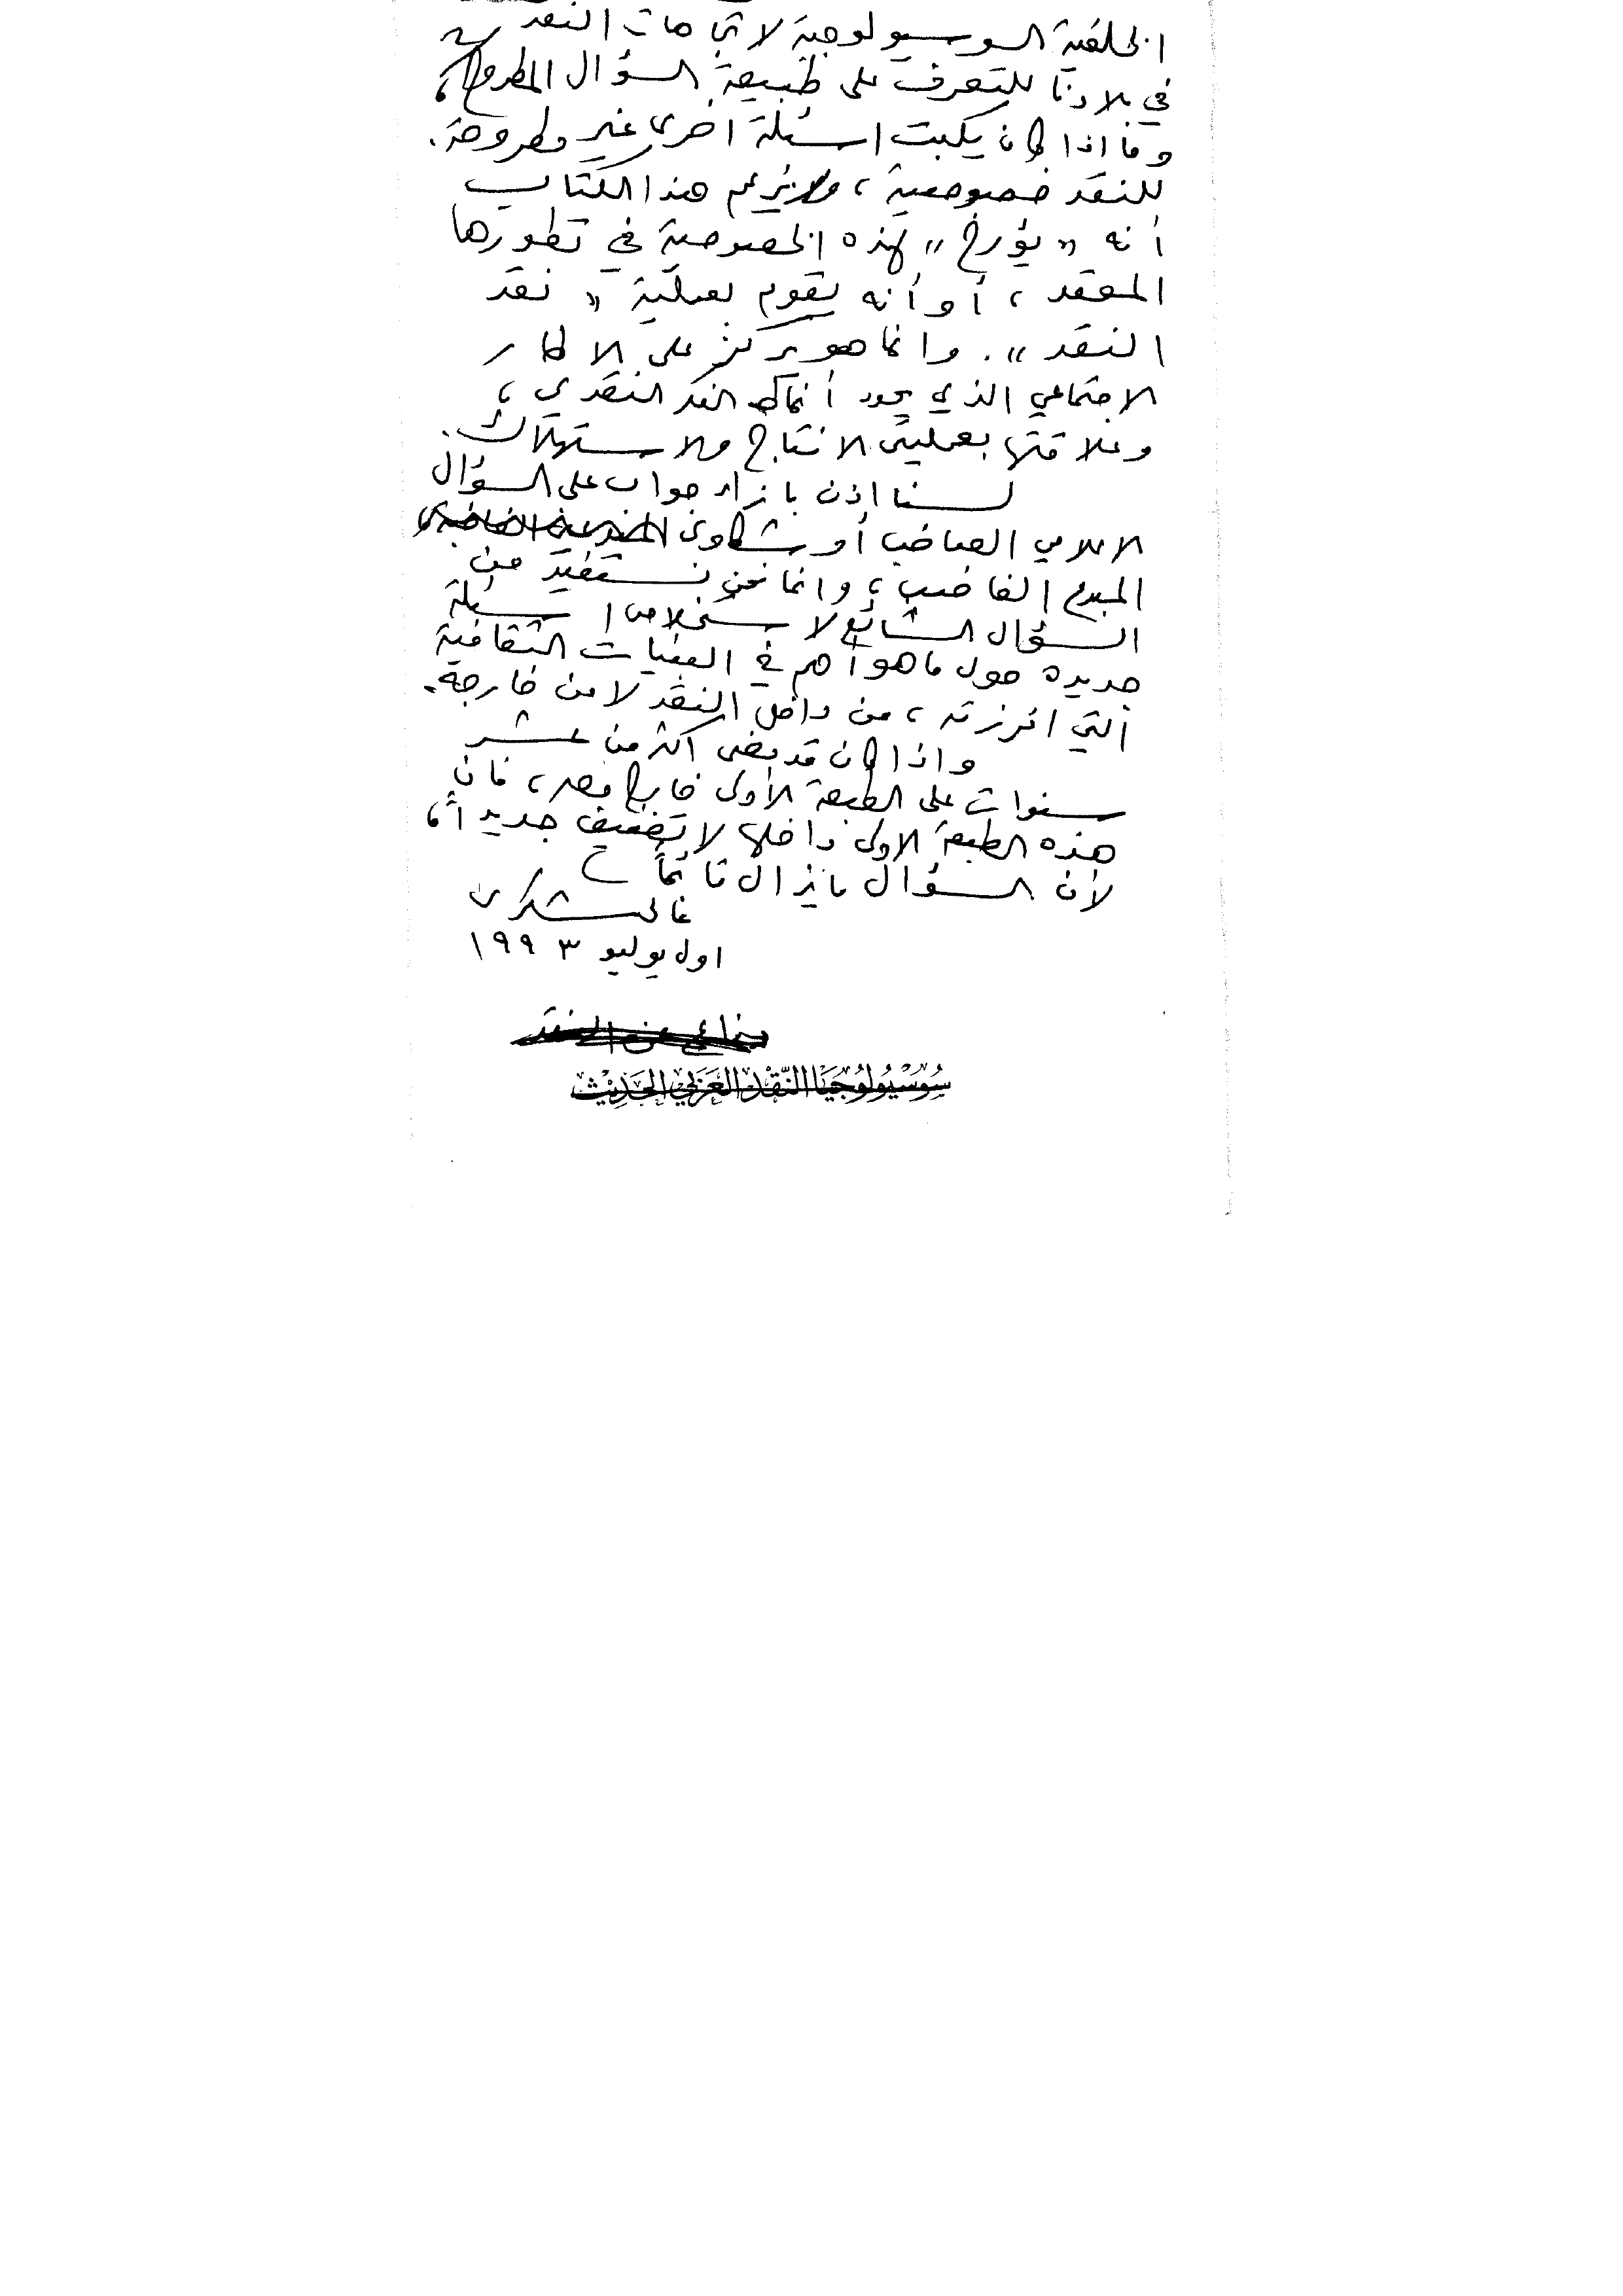 الخلفية السوسيولوجية لاتجاهات النقد
في بلادنا للتعرف على طبيعة السؤال المطروح،
وما اذا كان يكبت اسئلة اخرى غير مطروحة.
للنقد خصوصية، ولا يزعم هذا الكتاب
أنه «يؤرخ» لهذه الخصوصية في تطورها
المعقد، أو أنه يقوم بعملية «نقد
النقد». وانما هو يركز على الاطار
الاجتماعي الذي يحدد أنماط الفكر النقدي،
وعلاقتها بعمليتى الانتاج والاستهلاك.
لسنا اذن بازاء جواب على السؤال
الاعلامي الصاخب أو شكاوى
المبدع الغاضب، وانما نحن نستفيد من
السؤال الشائع لاستخلاص اسئلة
جديدة حول ما هو أهم في البنيات الثقافية
التي افرزته، من داخل النقد لا من خارجه.
واذا كان قد مضى اكثر من عشر
سنوات على الطبعة الأولى خارج مصر، فان
هذه الطبعة الاولى داخلها لا تضيف جديداً،
لأن السؤال ما يزال قائماً
غالى شكرى
اول يوليو ١٩٩٣
دفاع عن النقد
سُوسْيُولُوجْيَا النَّقْد العَرَبي الحَدِيْث